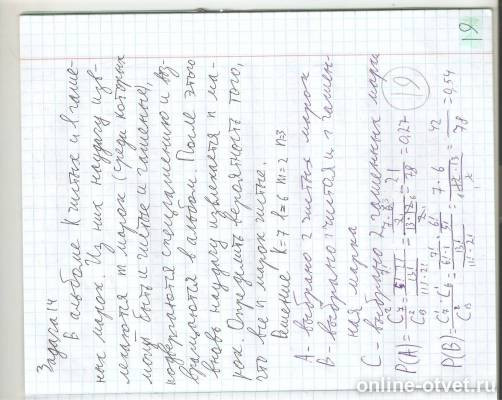 19
Задача 14
В альбоме k чистых и l гаше-
ных марок. Из них наудачу изв-
лекаются m марок (среди которых
могут быть и чистые и гашеные)
подвергаются спецгашению и воз-
вращаются в альбом. После этого
вновь наудачу извлекается n ма-
рок. Определить вероятность того,
что все n марок чистые.
Решение k=7 l=6 m=2 n=3
А - выбрано 2 чистых марок
В - выбрано 1 чистая и 1 гашен-
ная марка
С - выбрано 2 гашенных марки
P(A) = = 0,27
P(B) = = 7·6 = 42 78 = 0,54
19
online-otvet.ru